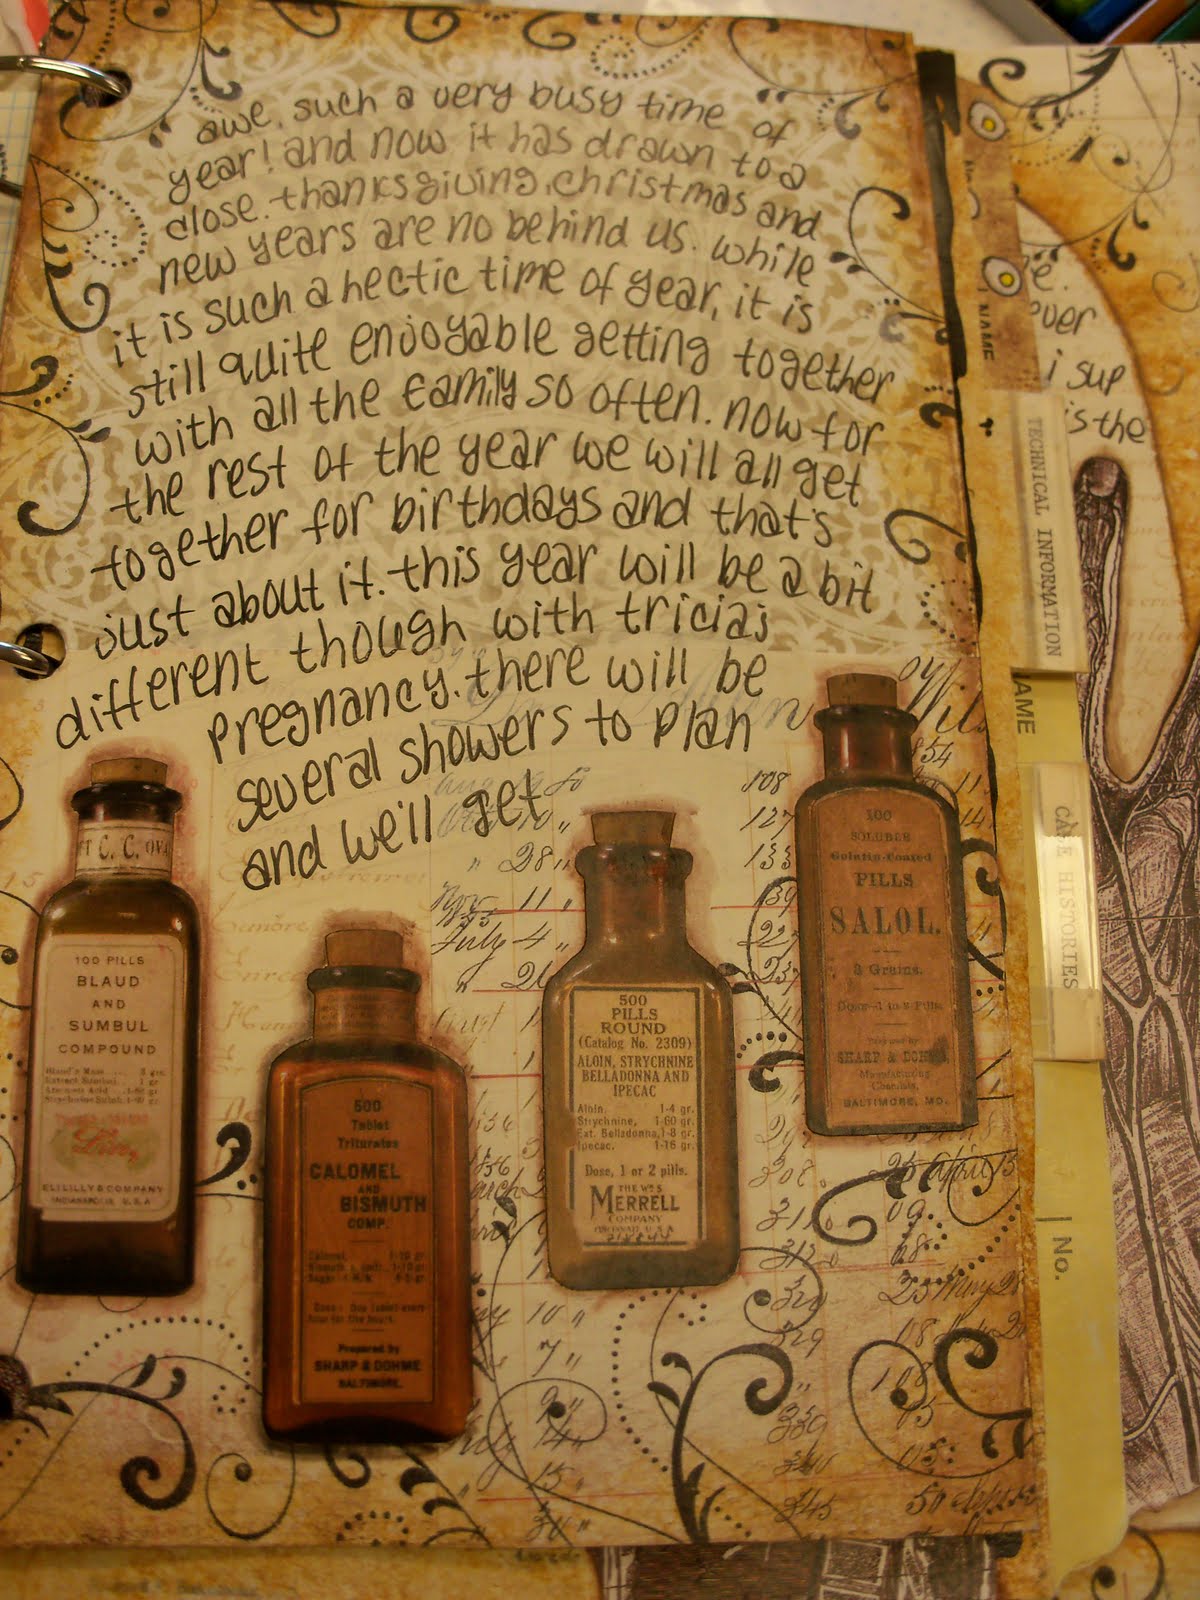 awe. such a very busy time of
year! and now it has drawn to a
close. thanksgiving, christmas and
new years are no behind us. while
it is such a hectic time of year, it is
still quite enjoyable getting together
with all the family so often. now for
the rest of the year we will all get
together for birthdays and that's
just about it. this year will be a bit
different though with tricia's
pregnancy. there will be
several showers to plan
and we'll get
C. C.
100 PILLS
BLAUD
AND
SUMBUL
COMPOUND
ELI LILLY & COMPANY
INDIANAPOLIS, U.S.A.
500
Tablet
Triturates
CALOMEL
AND
BISMUTH
COMP.
Prepared by
SHARP & DOHME
BALTIMORE.
500
PILLS
ROUND
(Catalog No. 2309)
ALOIN, STRYCHNINE
BELLADONNA AND
IPECAC
Aloin, 1-4 gr.
Strychnine, 1-60 gr.
Ext. Belladonna, 1-8 gr.
Ipecac. 1-16 gr.
Dose, 1 or 2 pills.
THE WM S
MERRELL
COMPANY
100
SOLUBLE
Gelatin-Coated
PILLS
SALOL.
3 Grains.
Prepared by
SHARP & DOHME
Manufacturing
Chemists,
BALTIMORE, MD.
108
127
133
28 "
11 "
July 4 "
10 "
7 "
9 "
15 "
30 "
329
339
345
ever
i sup
is the
NAME
TECHNICAL INFORMATION
AME
CASE HISTORIES
No.